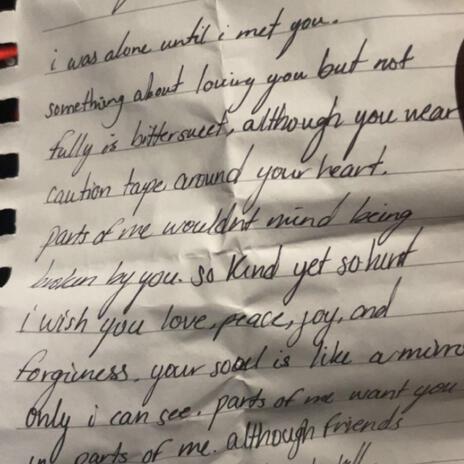 i was alone until i met you.
something about loving you but not
fully is bittersweet, although you wear
caution tape around your heart.
parts of me wouldnt mind being
broken by you. so kind yet so hurt
i wish you love, peace, joy, and
forgivness. your soul is like a mirro
only i can see. parts of me want you
parts of me. although friends